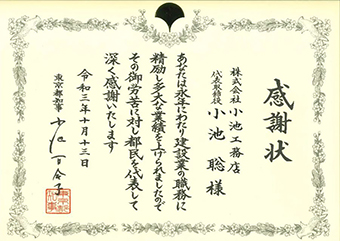 感謝状
株式会社小池工務店
代表取締役
小池 聡様
あなたは永年にわたり建設業の職務に
精励し多大な業績を上げられましたので
その御労苦に対し都民を代表して
深く感謝いたします
令和三年十月十三日
東京都知事 小池百合子